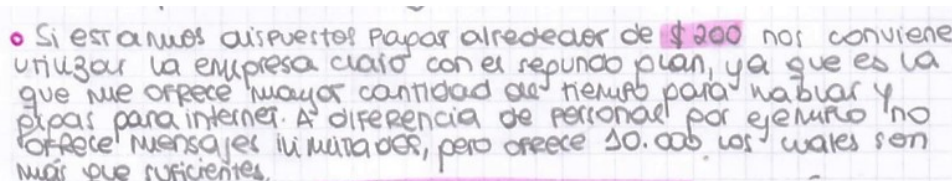 • Si estamos dispuestos pagar alrededor de $200 nos conviene
utilizar la empresa claro con el segundo plan, ya que es la
que me ofrece mayor cantidad de tiempo para hablar y
gigas para internet. A diferencia de personal por ejemplo no
ofrece mensajes ilimitados, pero ofrece 10.000 los cuales son
más que suficientes.